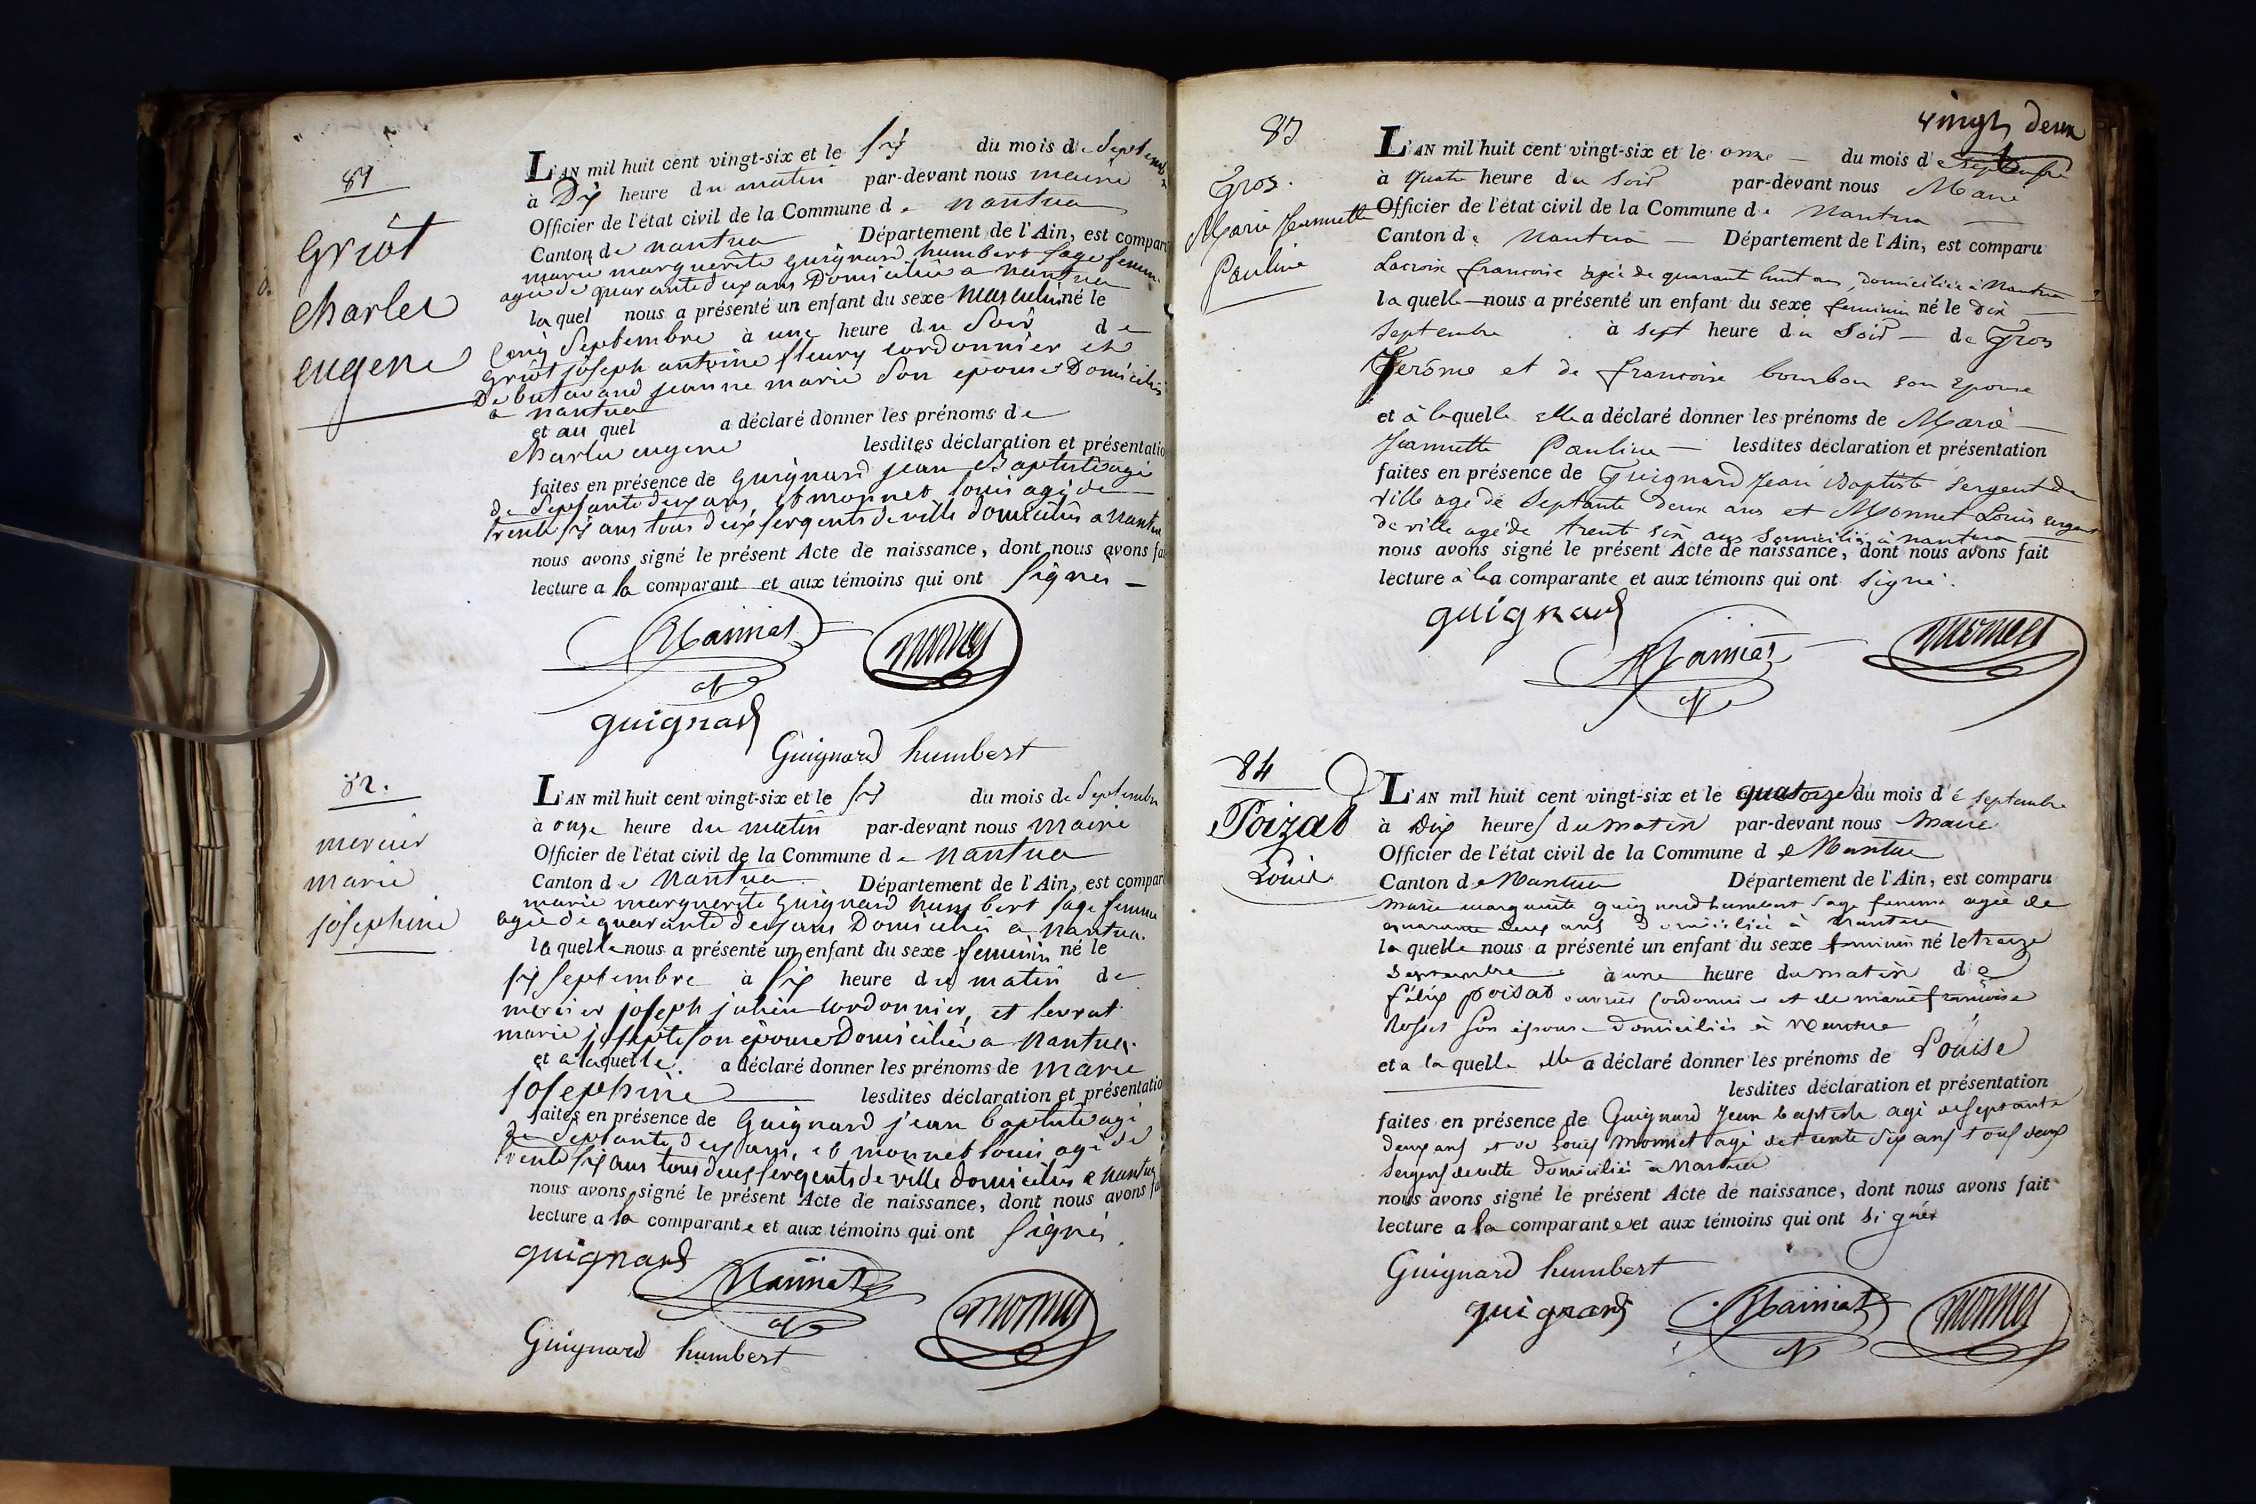 81
Griot
Charles
eugene
L'AN mil huit cent vingt-six et le six du mois de Septembre
à Dix heure du matin par-devant nous maire
Officier de l'état civil de la Commune de nantua
Canton de nantua Département de l'Ain, est comparu
marie marguerite guignard humbert sage femme
agée de quarante deux ans Domiciliée a nantua
laquel nous a présenté un enfant du sexe masculin né le
cinq Septembre à une heure du Soir de
griot joseph antoine fleury cordonnier et
De butavand jeanne marie Son epouse Domiciliés
a nantua
et au quel a déclaré donner les prénoms de
Charles eugene lesdites déclaration et présentation
faites en présence de guignard jean Baptiste agé
de Septante deux ans, et monnet louis agé de
trente six ans tous deux sergents de ville domiciliés a nantua
nous avons signé le présent Acte de naissance, dont nous avons fait
lecture a la comparant et aux témoins qui ont signés
Mainiat monnet
guignard
Guignard humbert
82.
mercier
marie
josephine
L'AN mil huit cent vingt-six et le six du mois de Septembre
à onze heure du matin par-devant nous maire
Officier de l'état civil de la Commune de nantua
Canton de nantua Département de l'Ain, est comparu
marie marguerite guignard humbert sage femme
agée de quarante deux ans Domiciliée a nantua
laquelle nous a présenté un enfant du sexe feminin né le
six septembre à six heure du matin de
mercier joseph julien cordonnier, et levrat
marie josepte son epouse Domiciliés a nantua
et a laquelle a déclaré donner les prénoms de marie
josephine lesdites déclaration et présentation
faites en présence de Guignard jean baptiste agé
de septante deux ans, et monnet louis agé de
trente six ans tous deux sergents de ville domiciliés a nantua
nous avons signé le présent Acte de naissance, dont nous avons fait
lecture a la comparante et aux témoins qui ont signés.
guignard Mainiat monnet
Guignard humbert
vingt deux
83
Gros.
Marie Jeannette
Pauline
L'AN mil huit cent vingt-six et le onze du mois de septembre
à quatre heure du soir par-devant nous Maire
Officier de l'état civil de la Commune de Nantua
Canton de Nantua Département de l'Ain, est comparu
Lacroix francoise agée de quarant huit ans, domiciliée à Nantua
laquelle nous a présenté un enfant du sexe feminin né le Dix
septembre à sept heure du Soir de Gros
Jerôme et de francoise bourbon son epouse
et à laquelle elle a déclaré donner les prénoms de Marie
Jeannette Pauline lesdites déclaration et présentation
faites en présence de Guignard Jean Baptiste sergent de
ville agé de Septante deux ans et Monnet Louis sergent
de ville agé de trent six ans domiciliés à nantua
nous avons signé le présent Acte de naissance, dont nous avons fait
lecture à la comparante et aux témoins qui ont signé.
guignard
Mainiat monnet
84
Poizat
Louise
L'AN mil huit cent vingt-six et le quatorze du mois de septembre
à Dix heures du matin par-devant nous Maire
Officier de l'état civil de la Commune de Nantua
Canton de Nantua Département de l'Ain, est comparu
Marie marguerite guignard humbert sage femme agée de
quarante deux ans domiciliée à Nantua
laquelle nous a présenté un enfant du sexe feminin né le treize
Septembre à une heure du matin de
félix poisat ouvrier cordonnier et de marie françoise
Rosset son épouse domiciliés à Nantua
et a laquelle elle a déclaré donner les prénoms de Louise
lesdites déclaration et présentation
faites en présence de Guignard Jean baptiste agé de septante
deux ans et de Louis Monnet agé de trente six ans tous deux
sergens de ville domiciliés à Nantua
nous avons signé le présent Acte de naissance, dont nous avons fait
lecture a la comparante et aux témoins qui ont signés
Guignard humbert
guignard Mainiat monnet